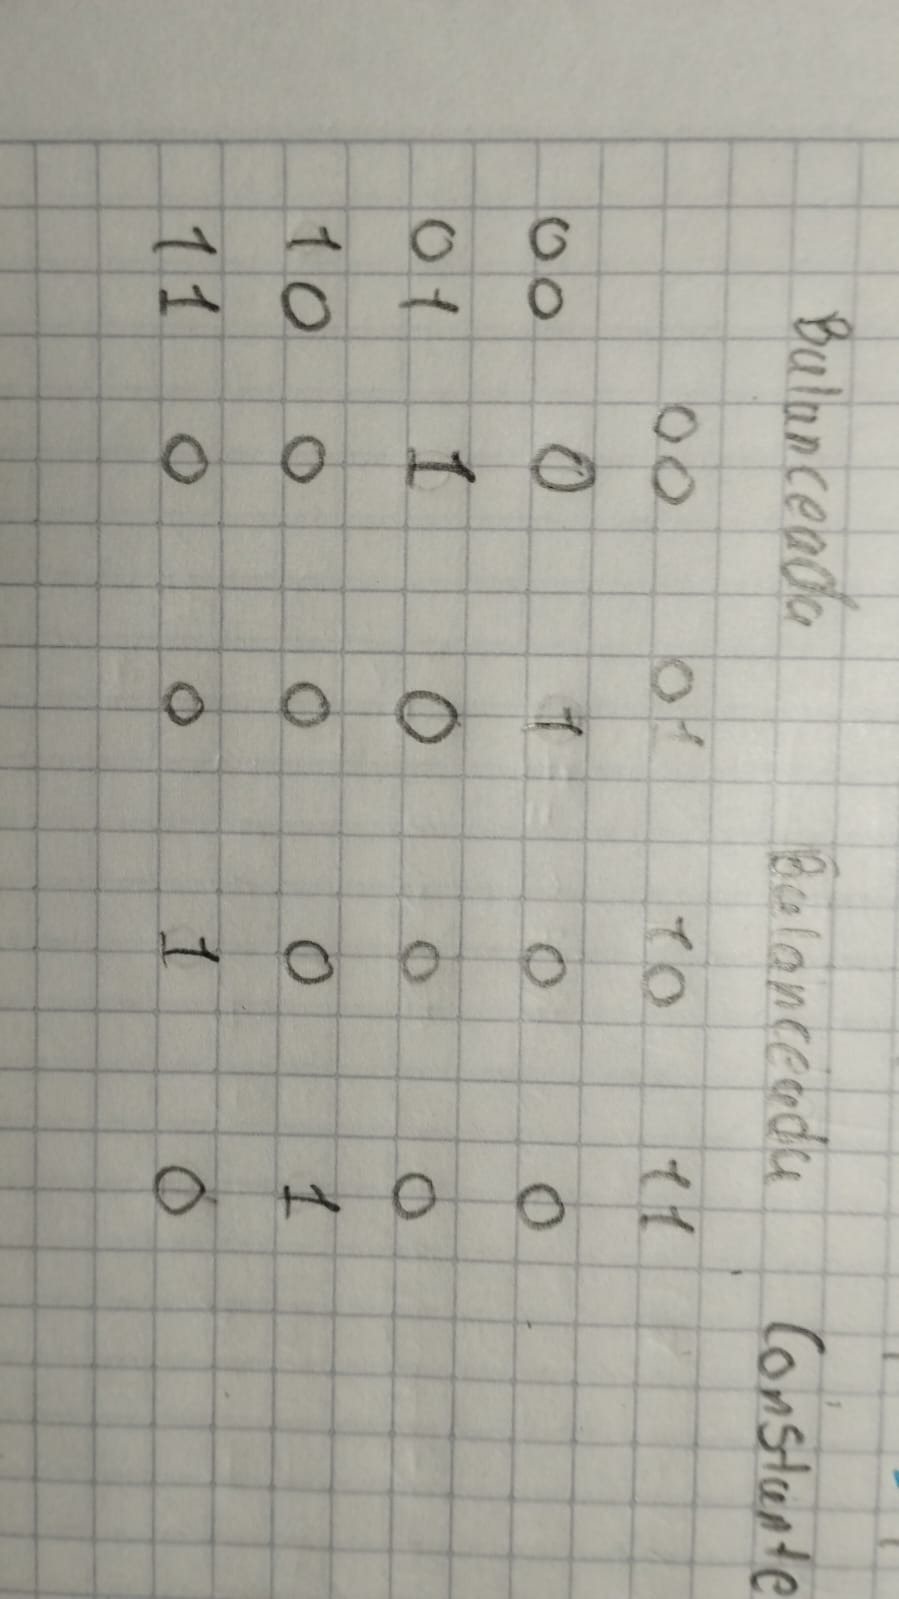 Balanceada Balanceada Constante
00 01 10 11
00 0 1 0 0
01 1 0 0 0
10 0 0 0 1
11 0 0 1 0